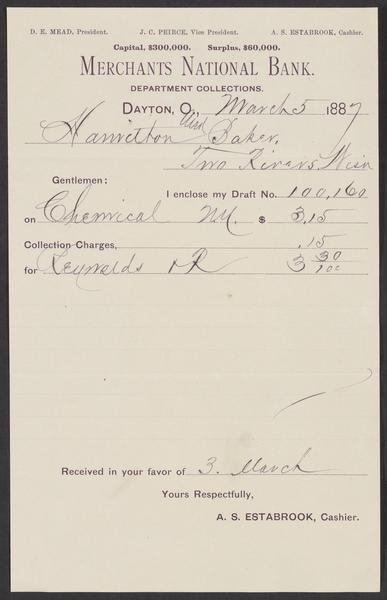 D. E. MEAD, President. J. C. PEIRCE, Vice President. A. S. ESTABROOK, Cashier.
Capital, $300,000. Surplus, $60,000.
MERCHANTS NATIONAL BANK.
DEPARTMENT COLLECTIONS.
DAYTON, O., March 5 1887
Hamilton and Baker,
Two Rivers, Wisn
Gentlemen:
I enclose my Draft No. 100,160
on Chemical N.Y. $ 3.15
Collection Charges, .15
for Reynolds & R 3 30/100
Received in your favor of 3. March
Yours Respectfully,
A. S. ESTABROOK, Cashier.